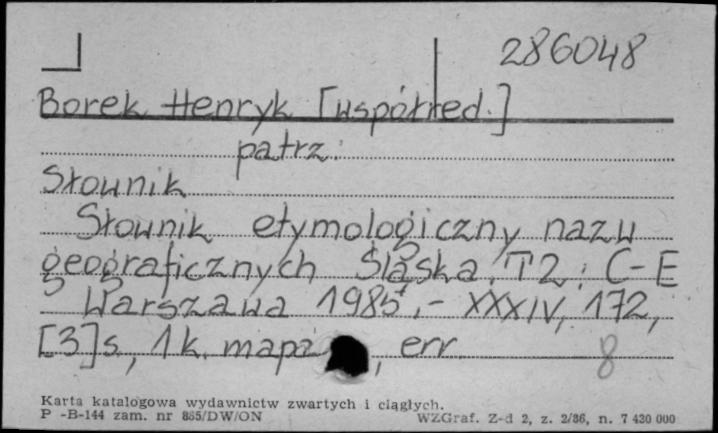 286048
Borek Henryk [współred.]
patrz:
Słownik
Słownik etymologiczny nazw
geograficznych Śląska. T2: C-E
Warszawa 1985.- XXXIV, 172,
[3]s, 1k. mapa, err.
8
Karta katalogowa wydawnictw zwartych i ciągłych.
P -B-144 zam. nr 855/DW/ON
WZGraf. Z-d 2, z. 2/86, n. 7 430 000